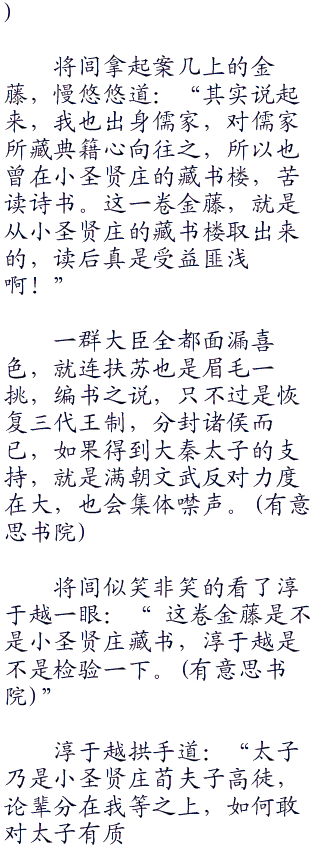 )
将闾拿起案几上的金
藤，慢悠悠道：“其实说起
来，我也出身儒家，对儒家
所藏典籍心向往之，所以也
曾在小圣贤庄的藏书楼，苦
读诗书。这一卷金藤，就是
从小圣贤庄的藏书楼取出来
的，读后真是受益匪浅
啊！”
一群大臣全都面漏喜
色，就连扶苏也是眉毛一
挑，编书之说，只不过是恢
复三代王制，分封诸侯而
已，如果得到大秦太子的支
持，就是满朝文武反对力度
在大，也会集体噤声。(有意
思书院)
将闾似笑非笑的看了淳
于越一眼：“ 这卷金藤是不
是小圣贤庄藏书，淳于越是
不是检验一下。(有意思书
院)”
淳于越拱手道：“太子
乃是小圣贤庄荀夫子高徒，
论辈分在我等之上，如何敢
对太子有质